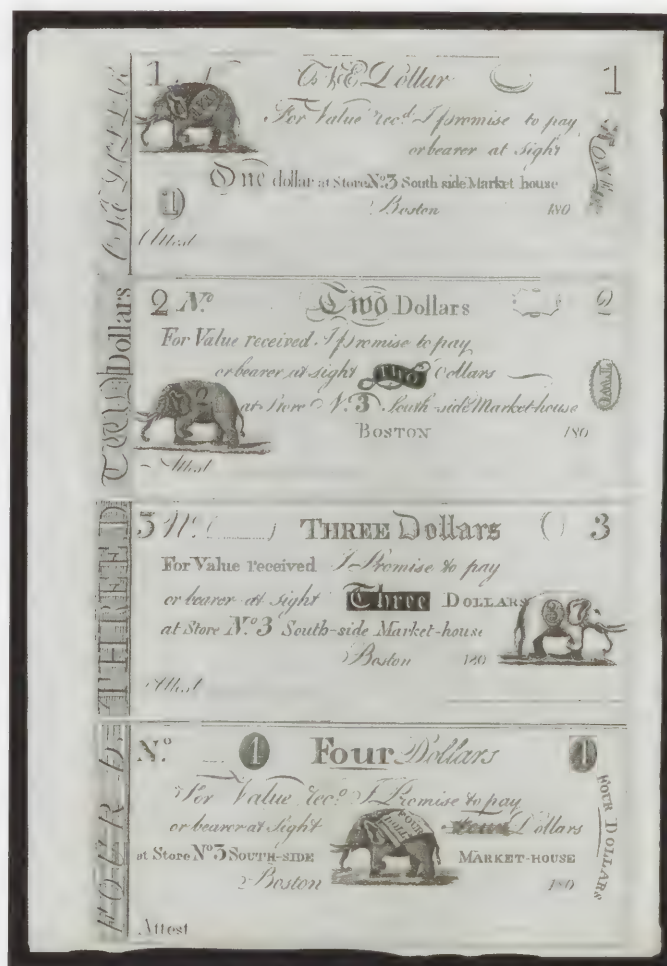 1 ONE Dollar 1
For Value recd. I promise to pay
or bearer at sight
One dollar at Store No. 3 South side Market house
1 Boston 180
Attest
ONE
TWO Dollars
2 No. Two Dollars
For Value received I promise to pay
or bearer at sight TWO Dollars
2
at Store No. 3 South-side Market-house
BOSTON 180
Attest
TWO
THREE D
3 No. THREE Dollars 3
For Value received I Promise to pay
or bearer at sight Three DOLLARS
at Store No. 3 South-side Market-house
Boston 180
Attest
FOUR D
No. Four Dollars
For Value recd. I Promise to pay
or bearer at Sight Four Dollars
FOUR DOLLS
at Store No. 3 SOUTH-SIDE MARKET-HOUSE
Boston 180
Attest
FOUR DOLLARS